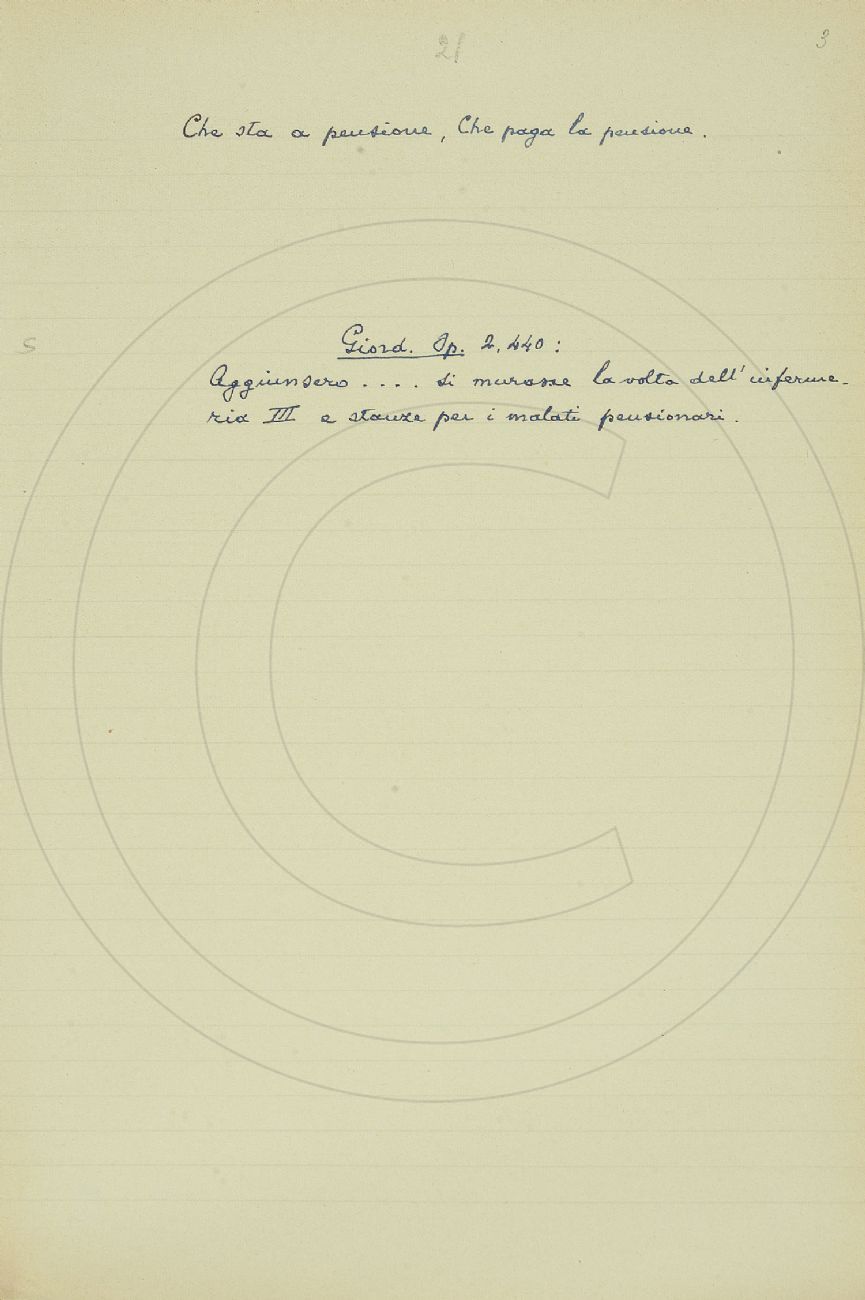 21
3
Che sta a pensione, Che paga la pensione.
S
Giord. Op. 2. 440:
Aggiunsero .... si murasse la volta dell'inferme-
ria III e stanze per i malati pensionari.